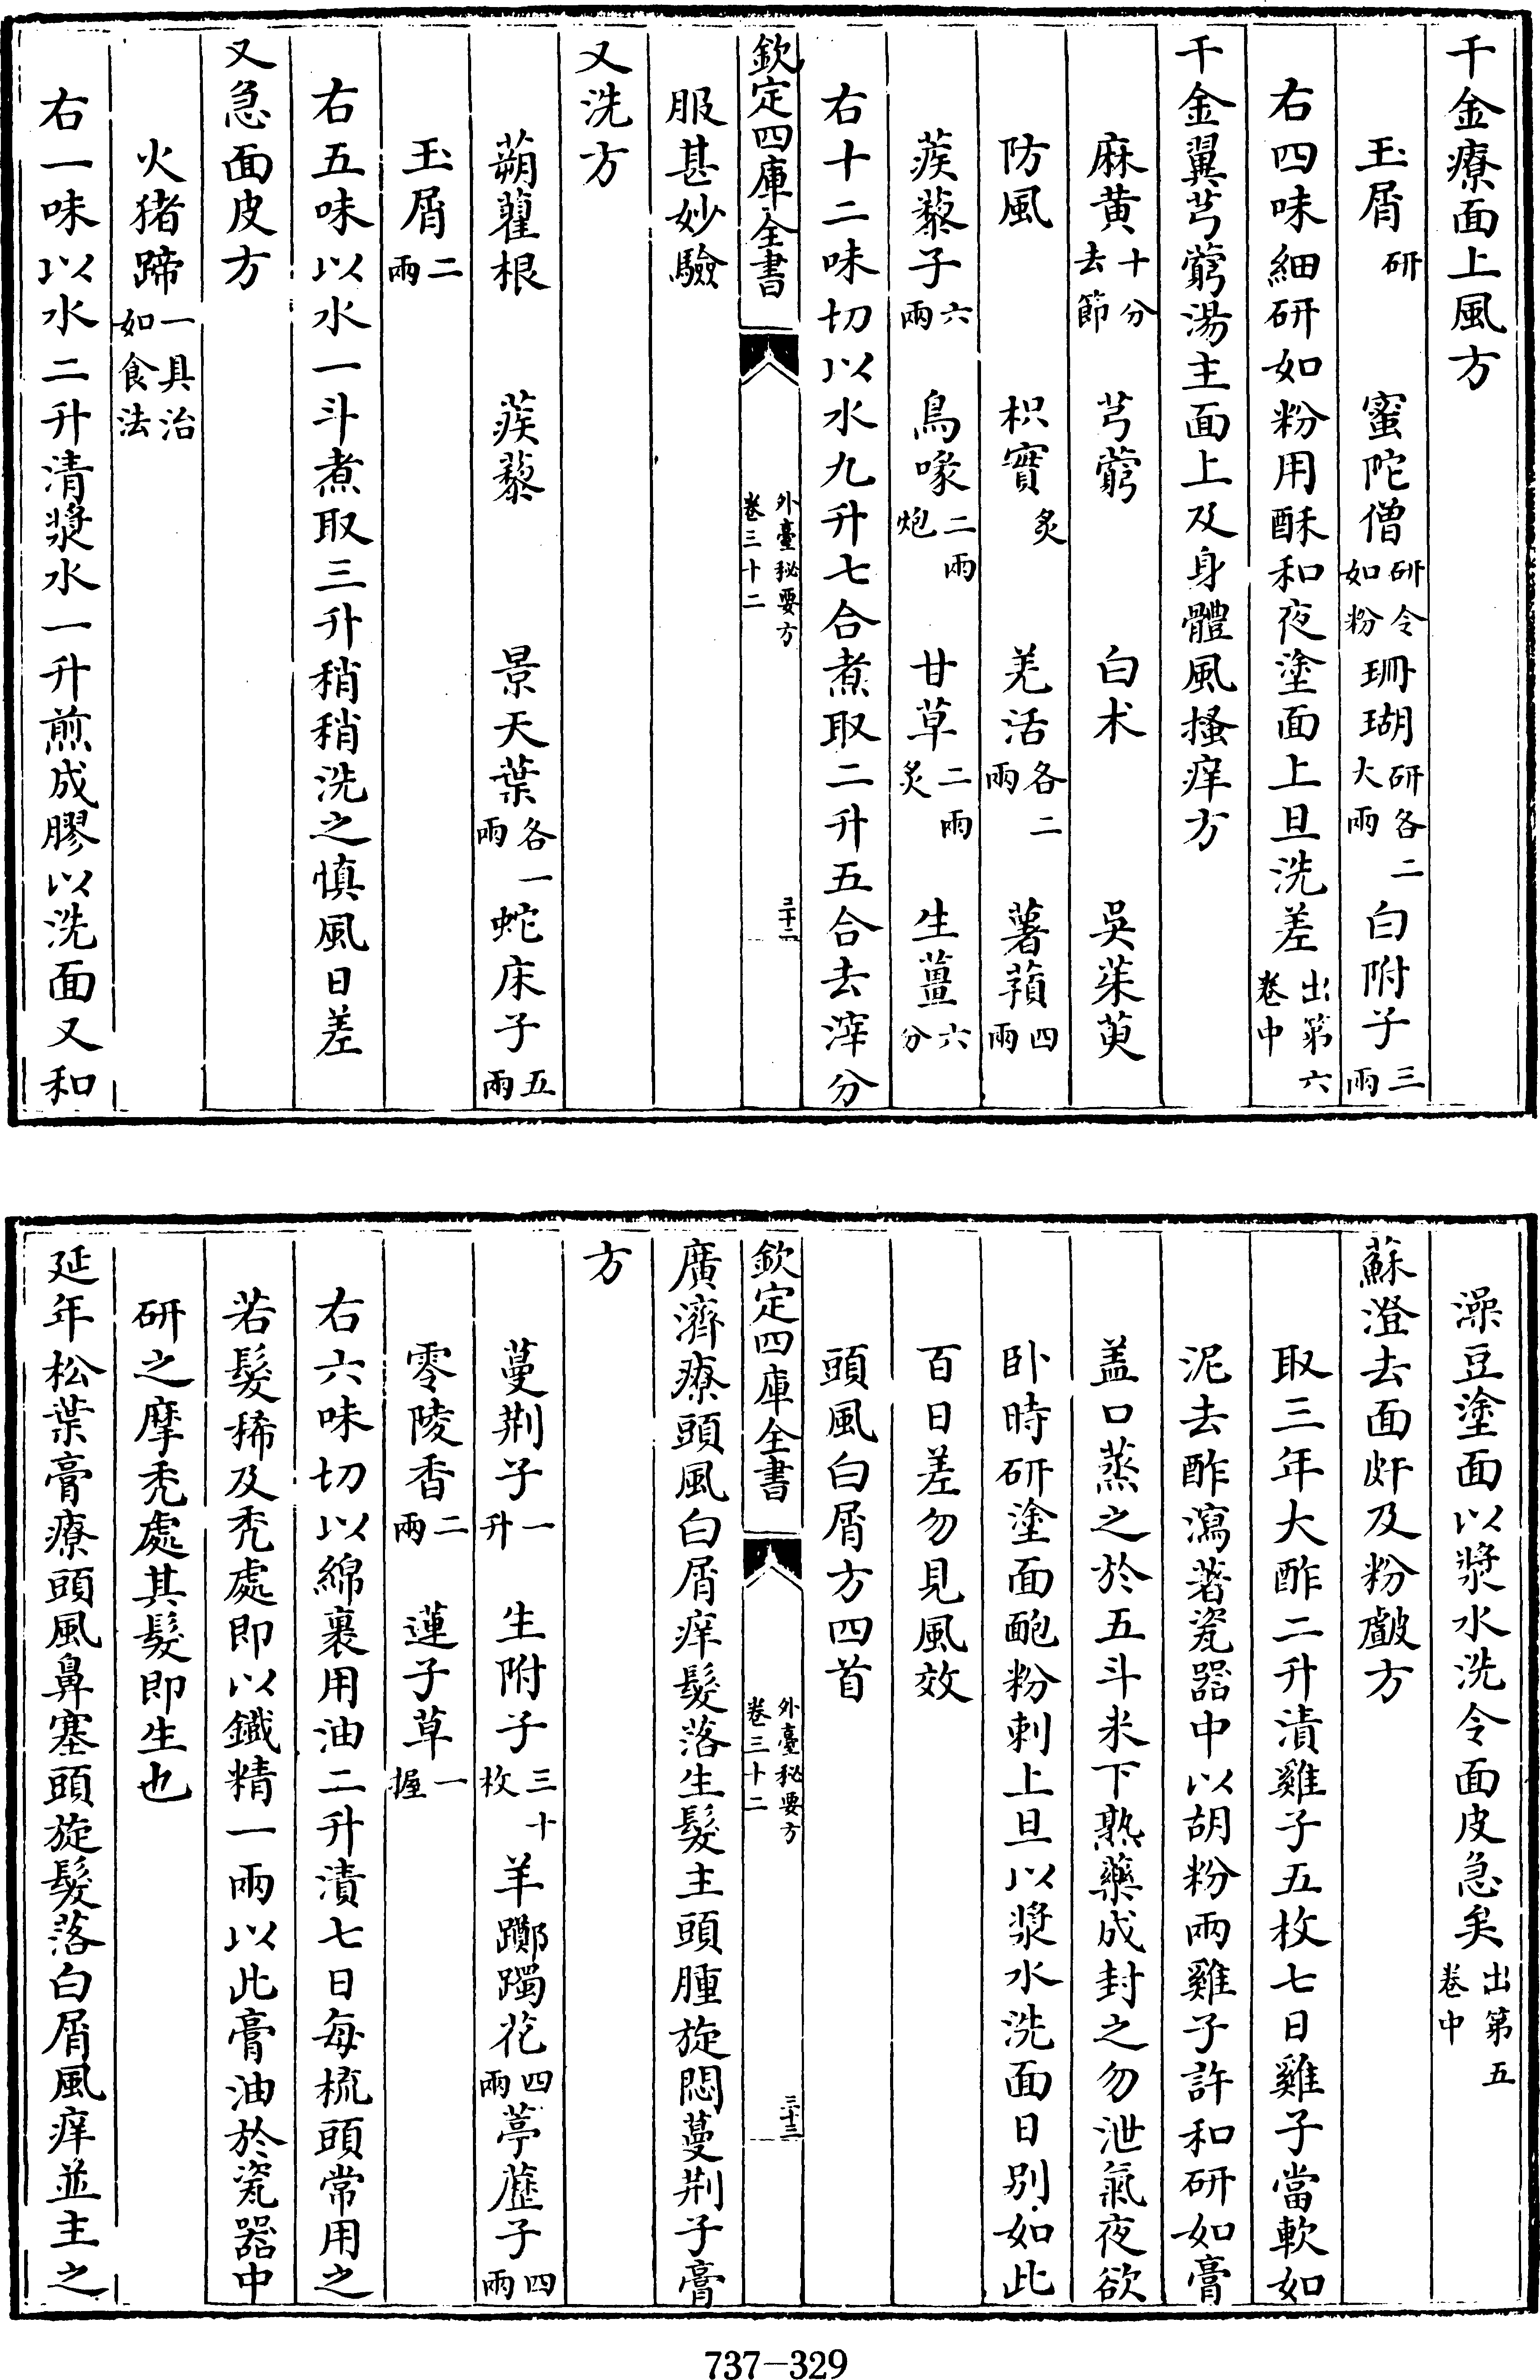 千金療面上風方
玉屑研 蜜陀僧研令如粉 珊瑚研各二大兩 白附子三兩
右四味細研如粉用酥和夜塗面上旦洗差出第六卷中
千金翼芎藭湯主面上及身體風搔痒方
麻黄十分去節 芎藭 白术 吳茱萸
防風 枳實炙 羌活各二兩 薯蕷四兩
蒺藜子六兩 烏喙二兩炮 甘草二兩炙 生薑六分
右十二味切以水九升七合煮取二升五合去滓分
欽定四庫全書 外臺秘要方卷三十二 三十二
服甚妙驗
又洗方
蒴藋根 蒺藜 景天葉各一兩 蛇床子五兩
玉屑二兩
右五味以水一斗煮取三升稍稍洗之慎風日差
又急面皮方
火猪蹄一具治如食法
右一味以水二升清漿水一升煎成膠以洗面又和
澡豆塗面以漿水洗令面皮急矣出第五卷中
蘇澄去面皯及粉皻方
取三年大酢二升漬雞子五枚七日雞子當軟如
泥去酢瀉著瓷器中以胡粉兩雞子許和研如膏
盖口蒸之於五斗米下熟藥成封之勿泄氣夜欲
卧時研塗面皰粉刺上旦以漿水洗面日別如此
百日差勿見風效
頭風白屑方四首
欽定四庫全書 外臺秘要方卷三十二 三十三
廣濟療頭風白屑痒髮落生髮主頭腫旋悶蔓荆子膏
方
蔓荆子一升 生附子三十枚 羊躑躅花四兩 葶藶子四兩
零陵香二兩 蓮子草一握
右六味切以綿裹用油二升漬七日每梳頭常用之
若髮稀及秃處即以鐵精一兩以此膏油於瓷器中
研之摩秃處其髮即生也
延年松葉膏療頭風鼻塞頭旋髮落白屑風痒並主之
737-329